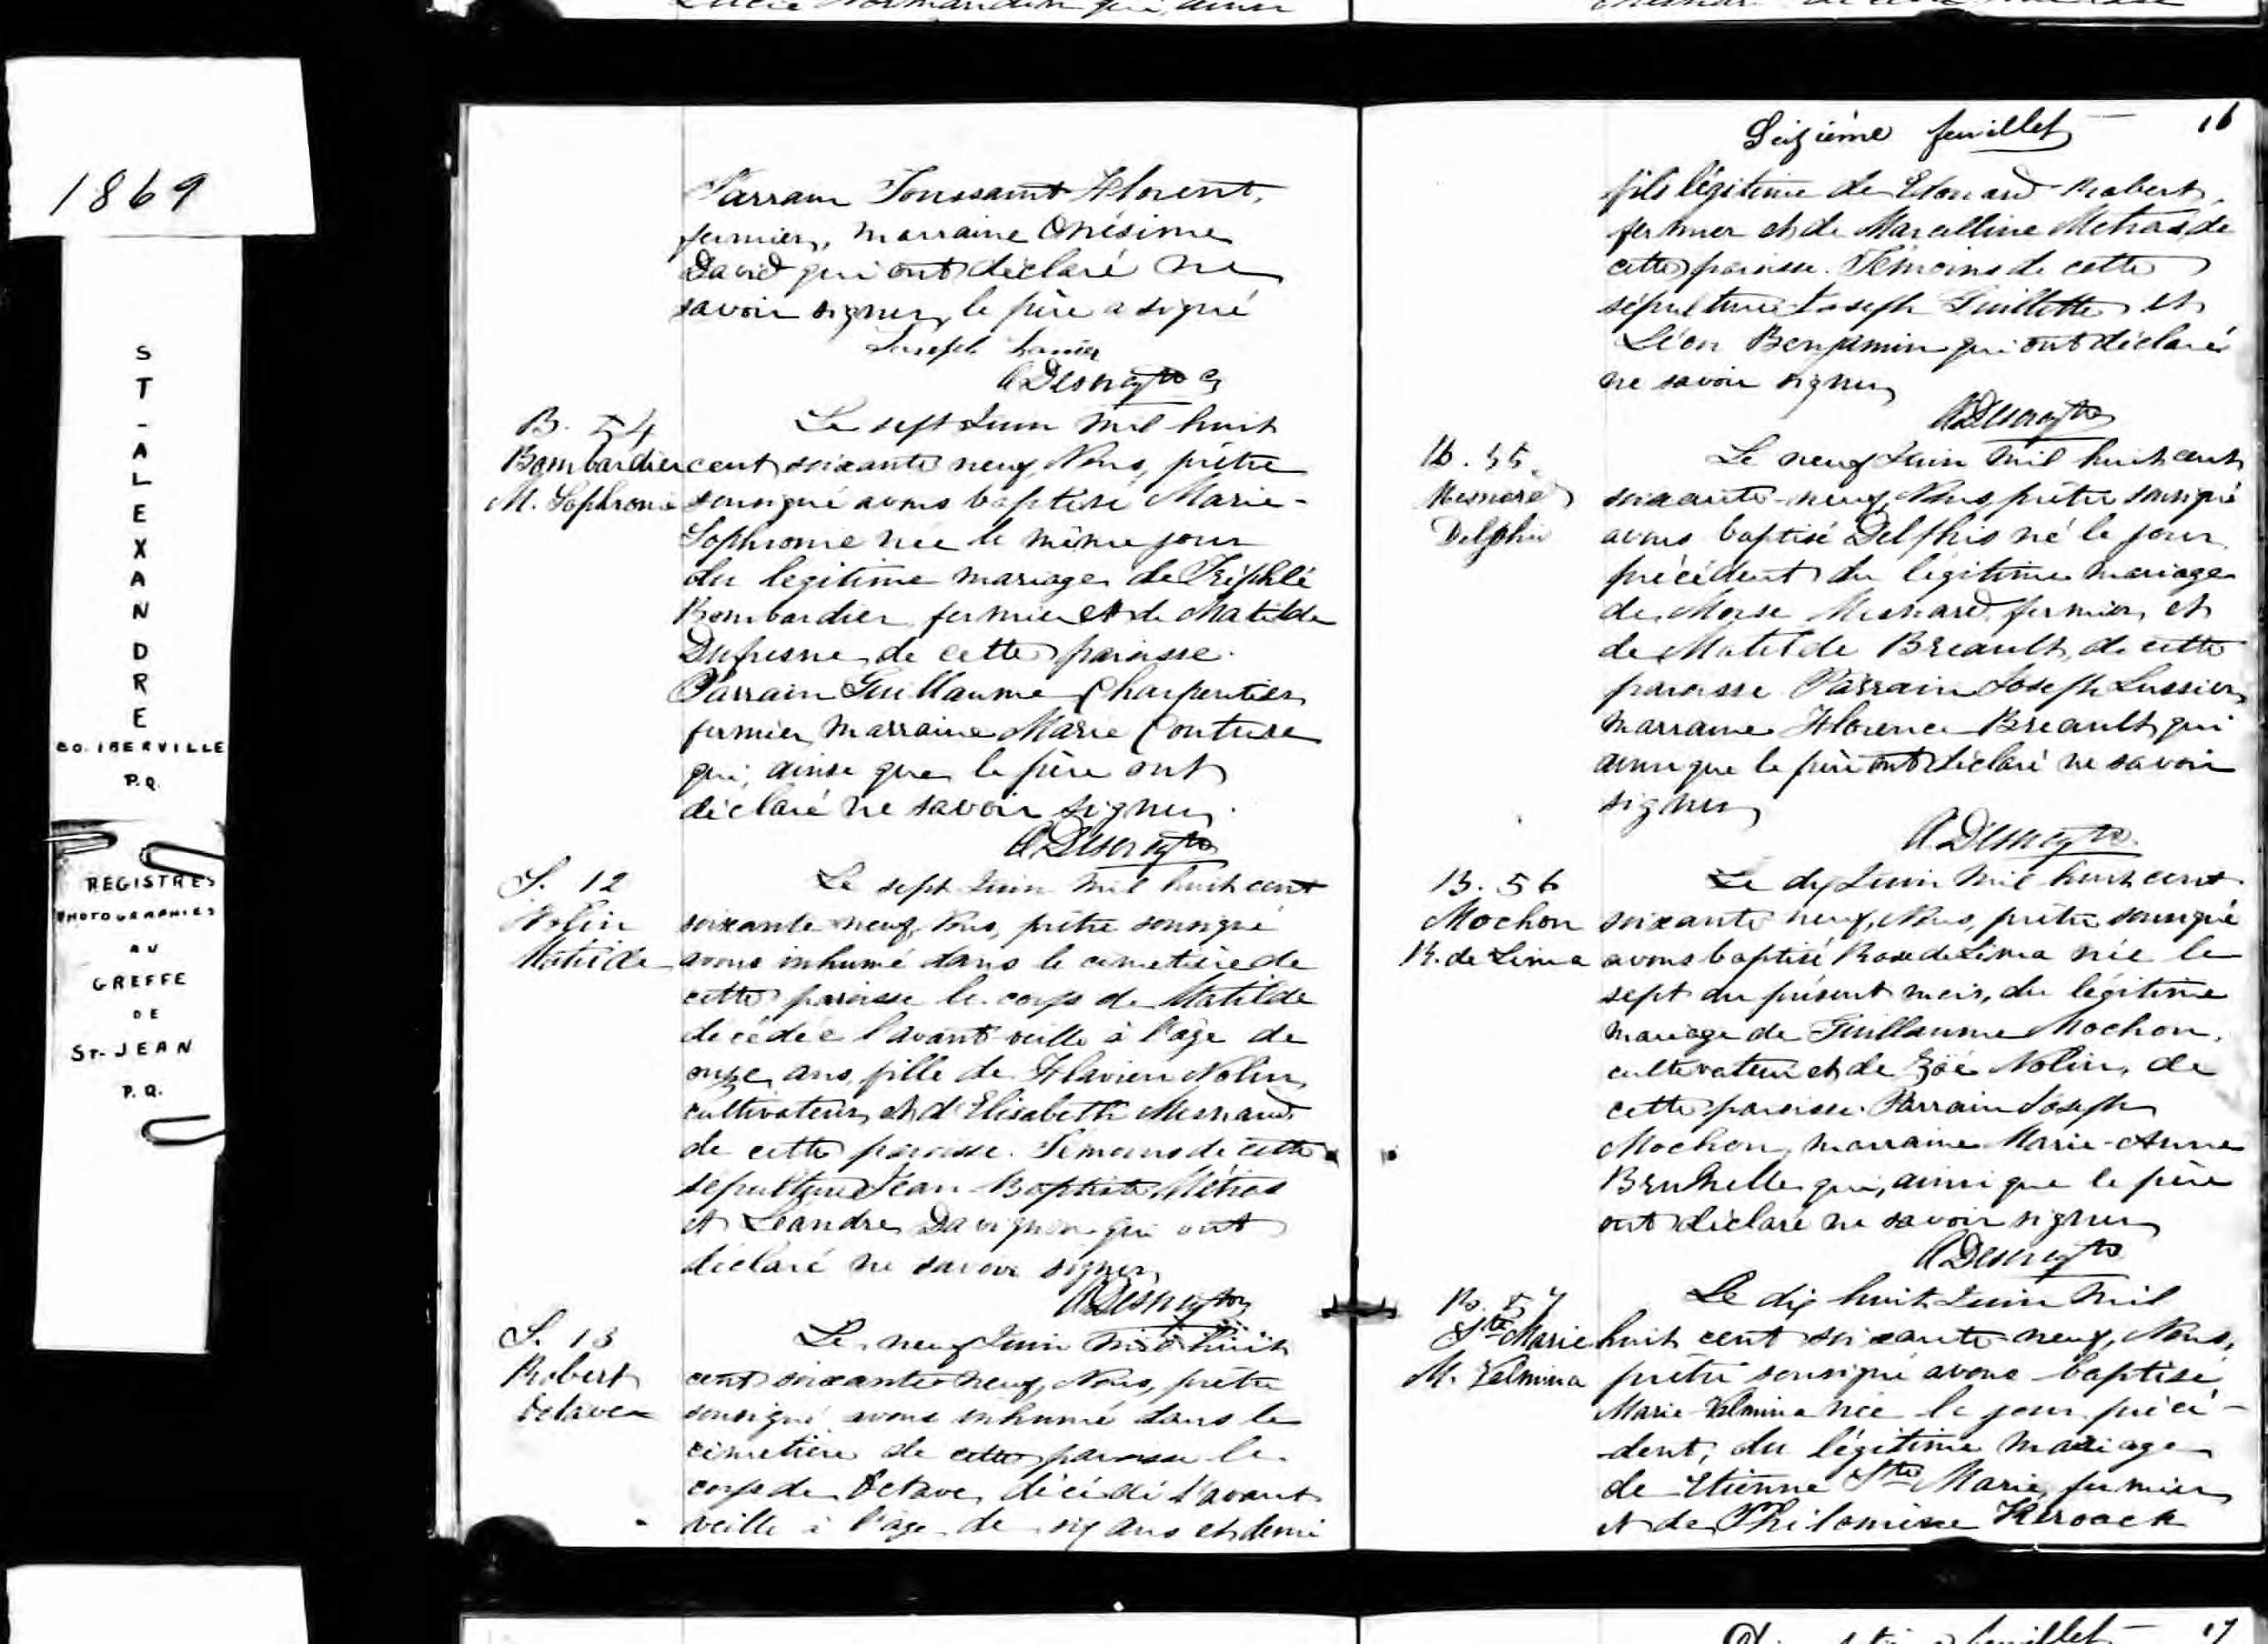 1869
ST-ALEXANDRE
CO. IBERVILLE
P.Q.
REGISTRES
PHOTOGRAPHIES
AU
GREFFE
DE
ST-JEAN
P.Q.
Parrain Toussaint Florent,
fermier, marraine Onésime
David qui ont déclaré ne
savoir signer, le père a signé
Joseph
B. 54
Bombardier
M. Sophronie
Le sept Juin mil huit
cent soixante neuf, Nous, prêtre
sousigné avons baptisé Marie-
Sophronie née le même jour
du légitime mariage de Tréfflé
Bombardier fermier et de Matilde
Dufresne de cette paroisse.
Parrain Guillaume Charpentier
fermier, marraine Marie Couture
qui, ainsi que le père ont
déclaré ne savoir signer.
S. 12
Nolin
Matilde
Le sept Juin mil huit cent
soixante neuf, Nous, prêtre sousigné
avons inhumé dans le cimetière de
cette paroisse le corps de Matilde
décédée l'avant veille à l'âge de
onze ans, fille de Flavien Nolin,
cultivateur, et d'Elisabeth Mesnard
de cette paroisse. Témoins de cette
sépulture Jean-Baptiste Métras
et Léandre Davignon qui ont
déclaré ne savoir signer
S. 13
Robert
Octave
Le neuf Juin mil huit
cent soixante neuf, Nous, prêtre
sousigné avons inhumé dans le
cimetière de cette paroisse le
corps de Octave, décédé l'avant
veille à l'âge de six ans et demi
Seizième feuillet 16
fils légitime de Edouard Robert,
fermier et de Marcelline Metras, de
cette paroisse. Témoins de cette
sépulture Joseph Guillotte et
Léon Benjamin qui ont déclaré
ne savoir signer
B. 55.
Mesnard
Delphis
Le neuf Juin mil huit cent
soixante-neuf, Nous, prêtre sousigné
avons baptisé Delphis né le jour
précédent du légitime mariage
de Moise Mesnard fermier, et
de Matilde Breault, de cette
paroisse Parrain Joseph Lussier,
marraine Florence Breault qui
ainsi que le père ont déclaré ne savoir
signer
B. 56
Mochon
R. de Lima
Le dix Juin mil huit cent
soixante neuf, Nous, prêtre sousigné
avons baptisé Rose de Lima née le
sept du présent mois, du légitime
mariage de Guillaume Mochon,
cultivateur et de Zoé Nolin, de
cette paroisse. Parrain Joseph
Mochon, marraine Marie-Anne
qui, ainsi que le père
ont déclaré ne savoir signer
B. 57
Ste Marie
M. Valmina
Le dix huit Juin mil
huit cent soixante neuf, Nous,
prêtre sousigné avons baptisé
Marie Valmina née le jour précé-
dent, du légitime mariage
de Etienne Ste Marie, fermier
et de Philomène Kéroack
feuillet 17